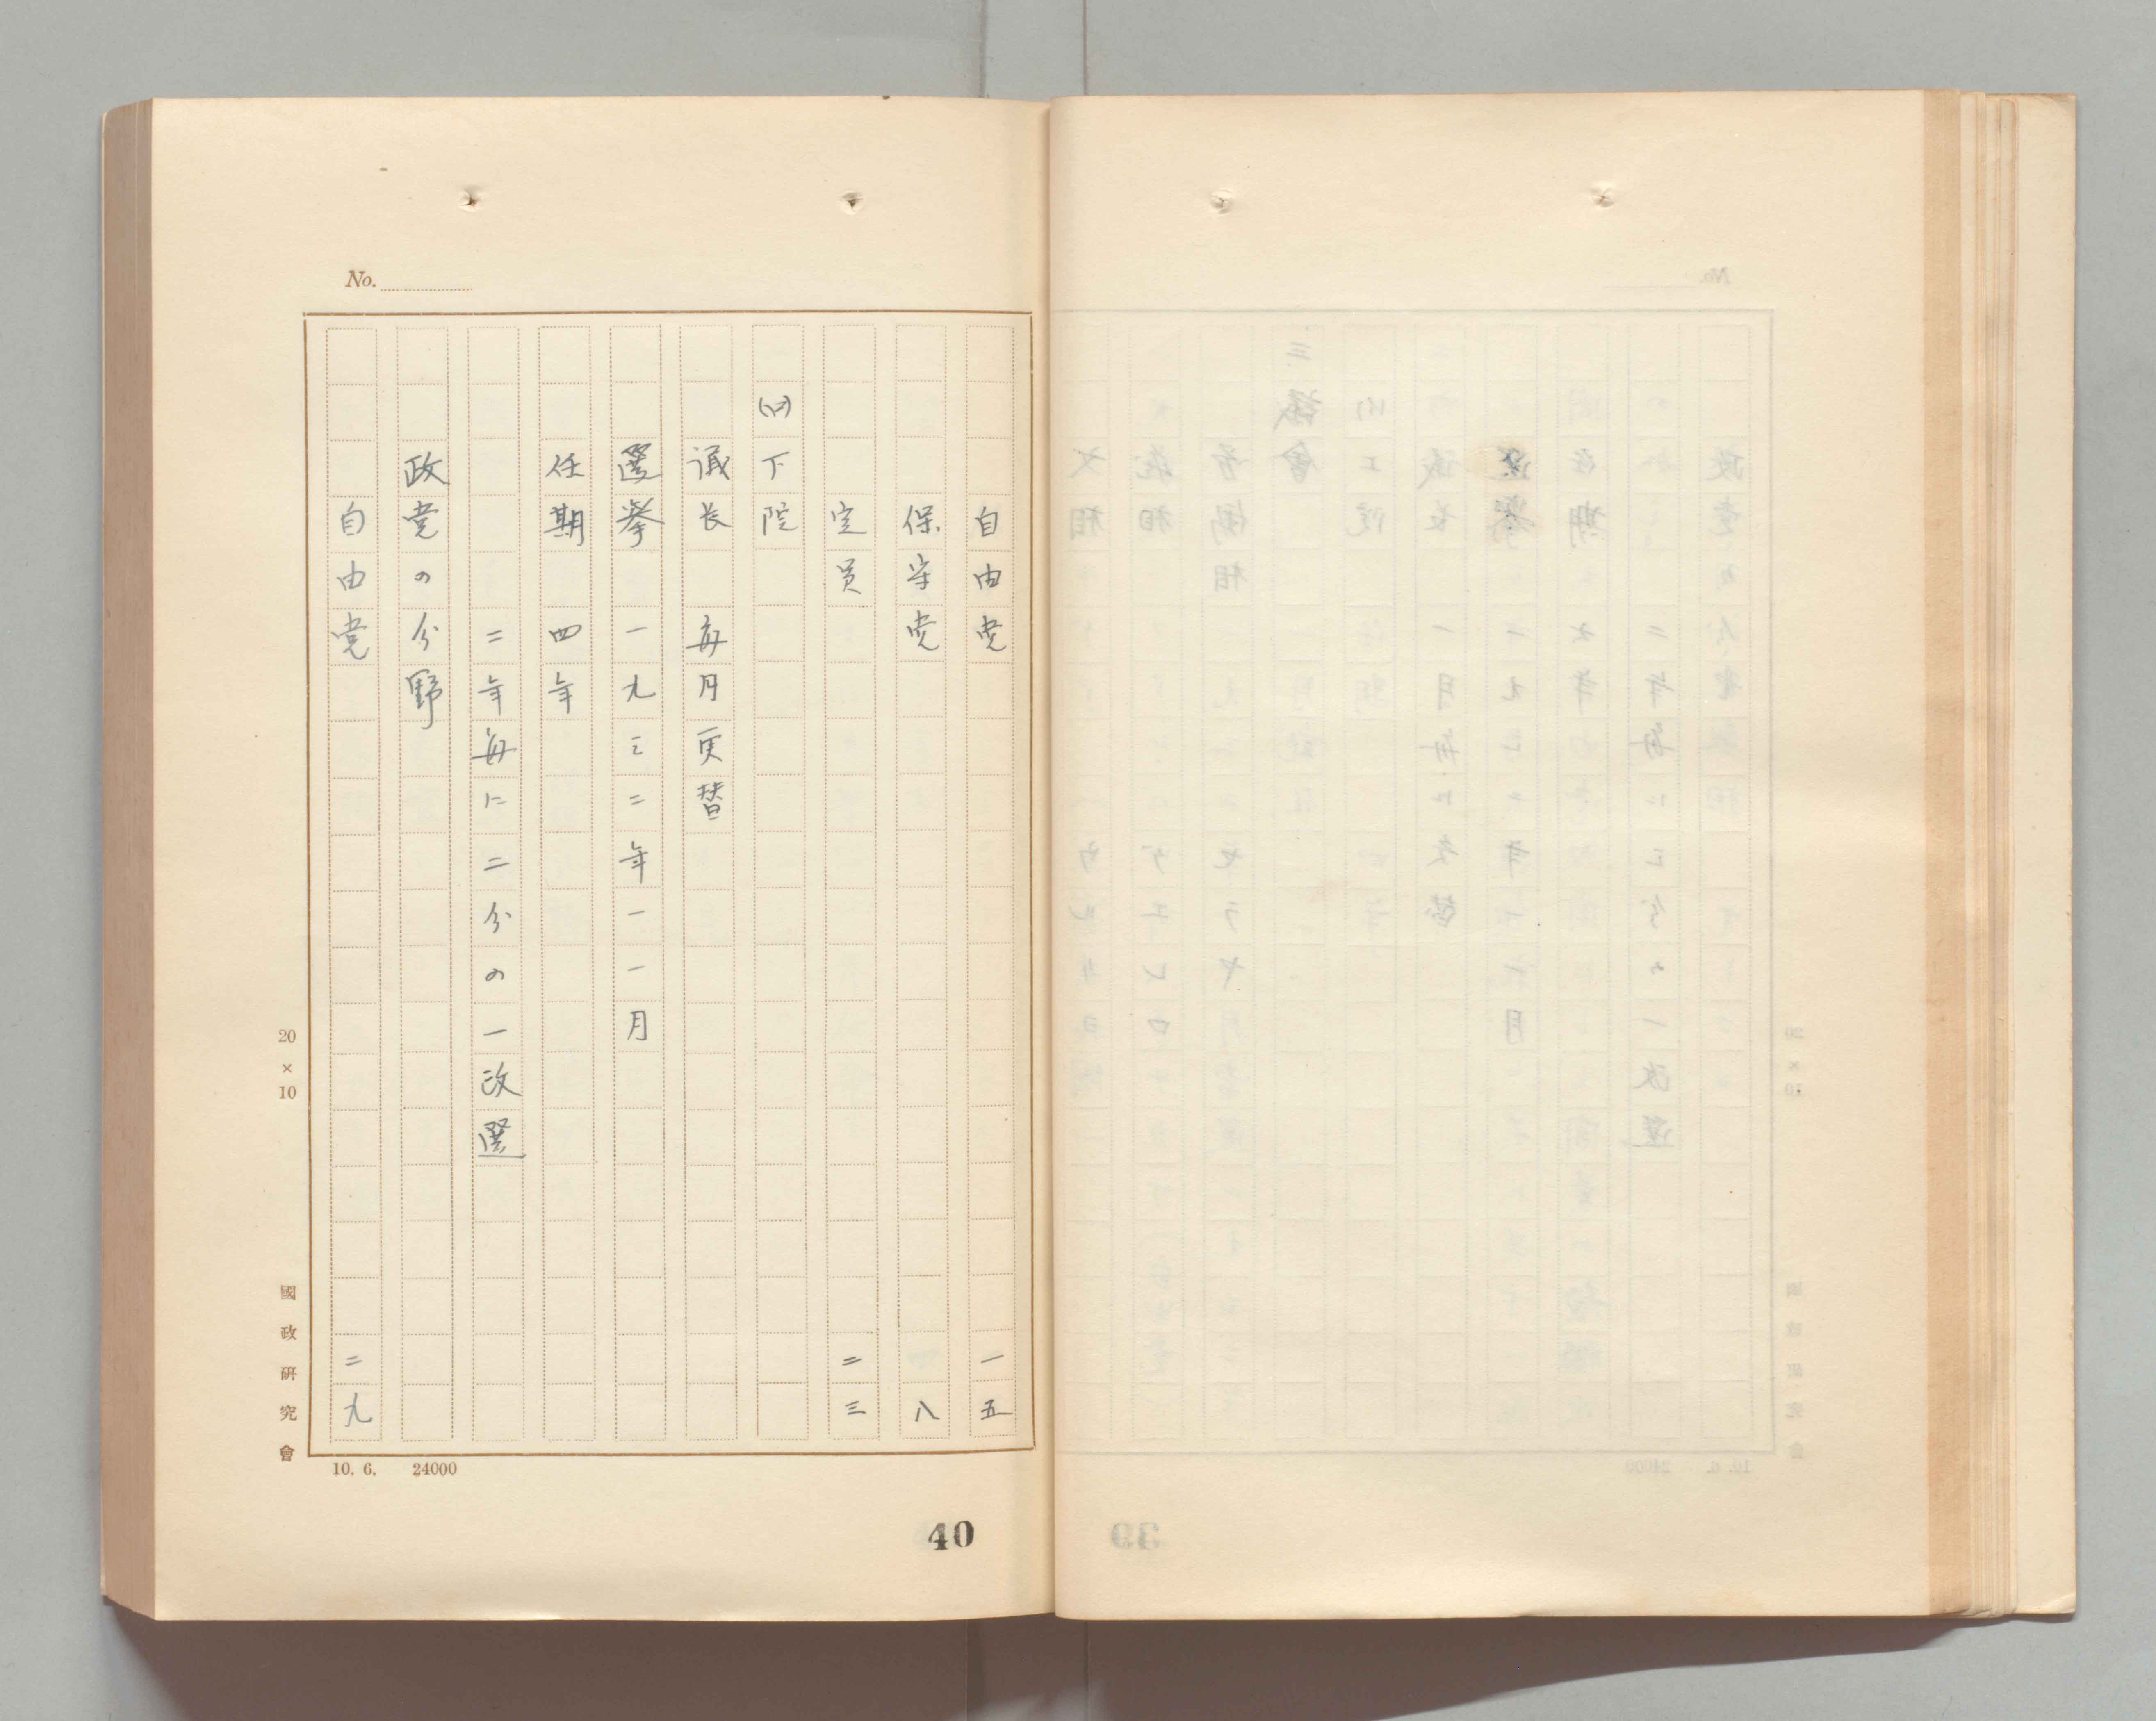 No.
自由党 一五
保守党 八
定員 二三
(ロ)下院
議长 毎月更替
選挙 一九三二年一一月
任期 四年
二年毎に二分の一改選
政党の分野
自由党 二九
20×10
國政研究會
10. 6. 24000
40